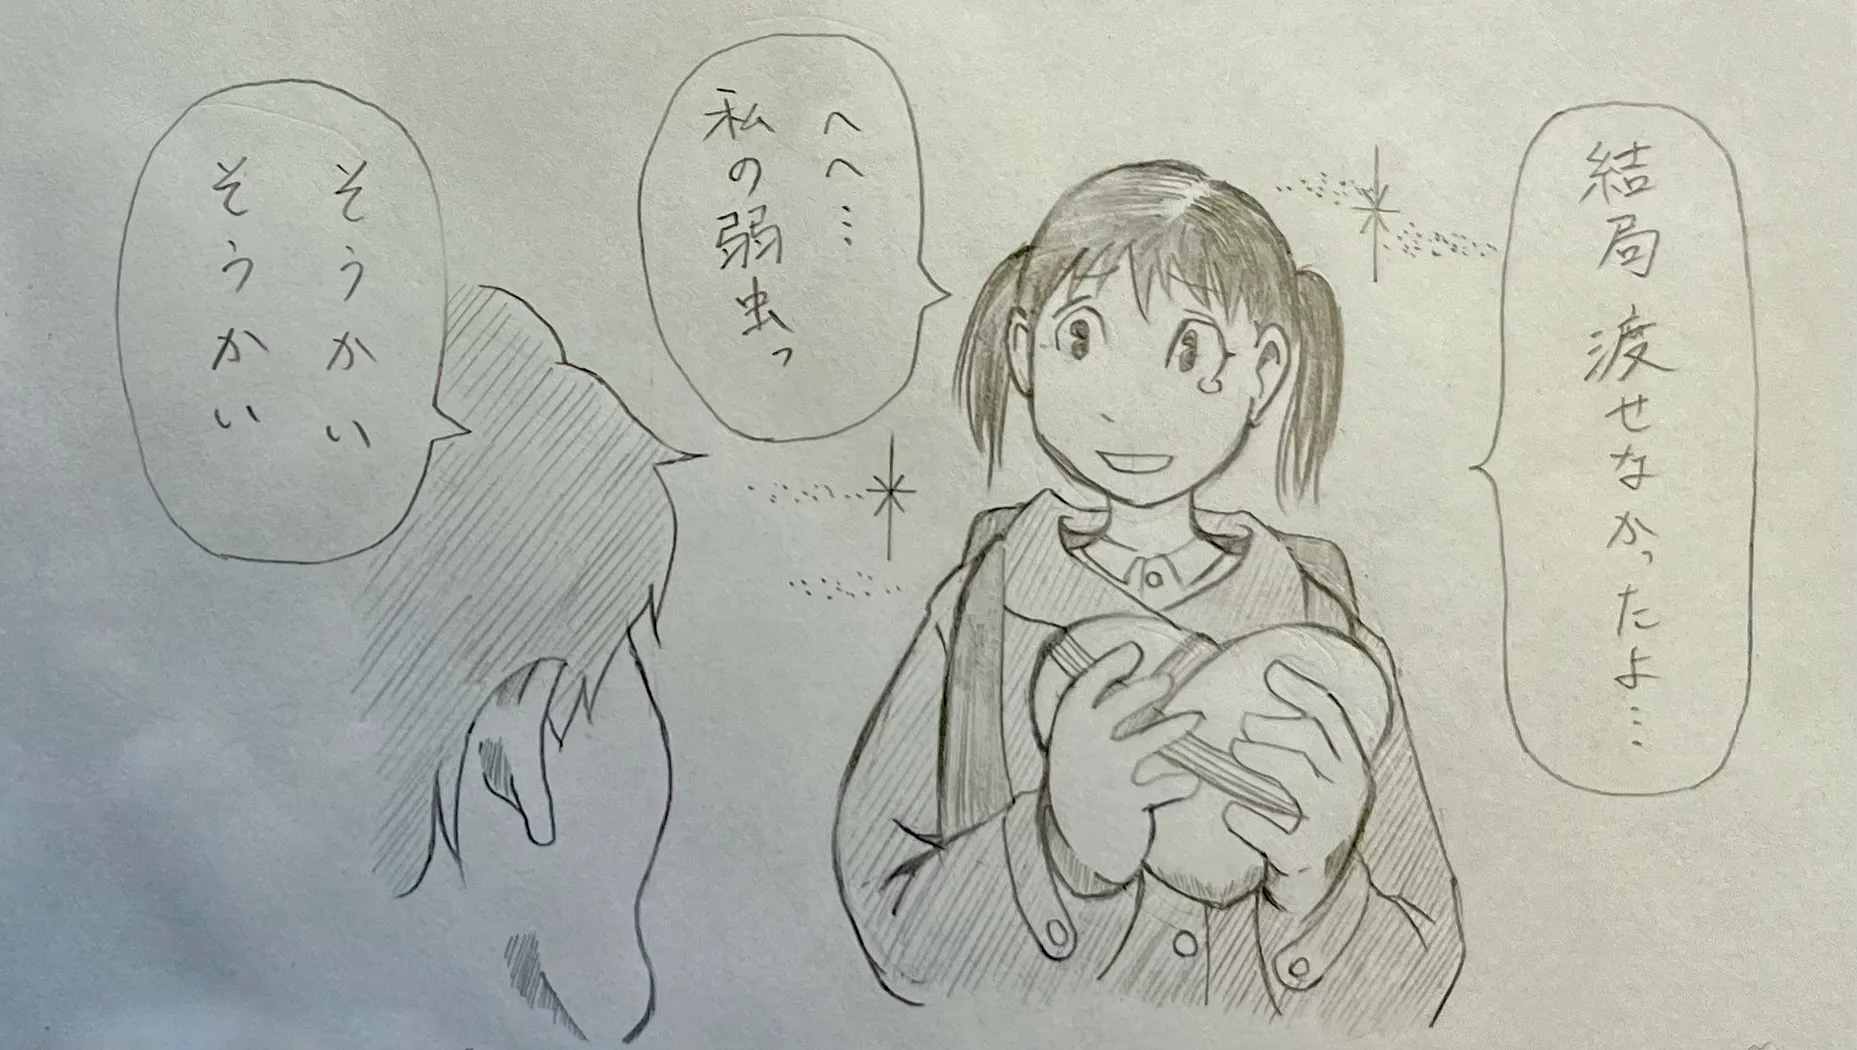 結局 渡せなかったよ…
へへ…
私の弱虫っ
そうかい
そうかい